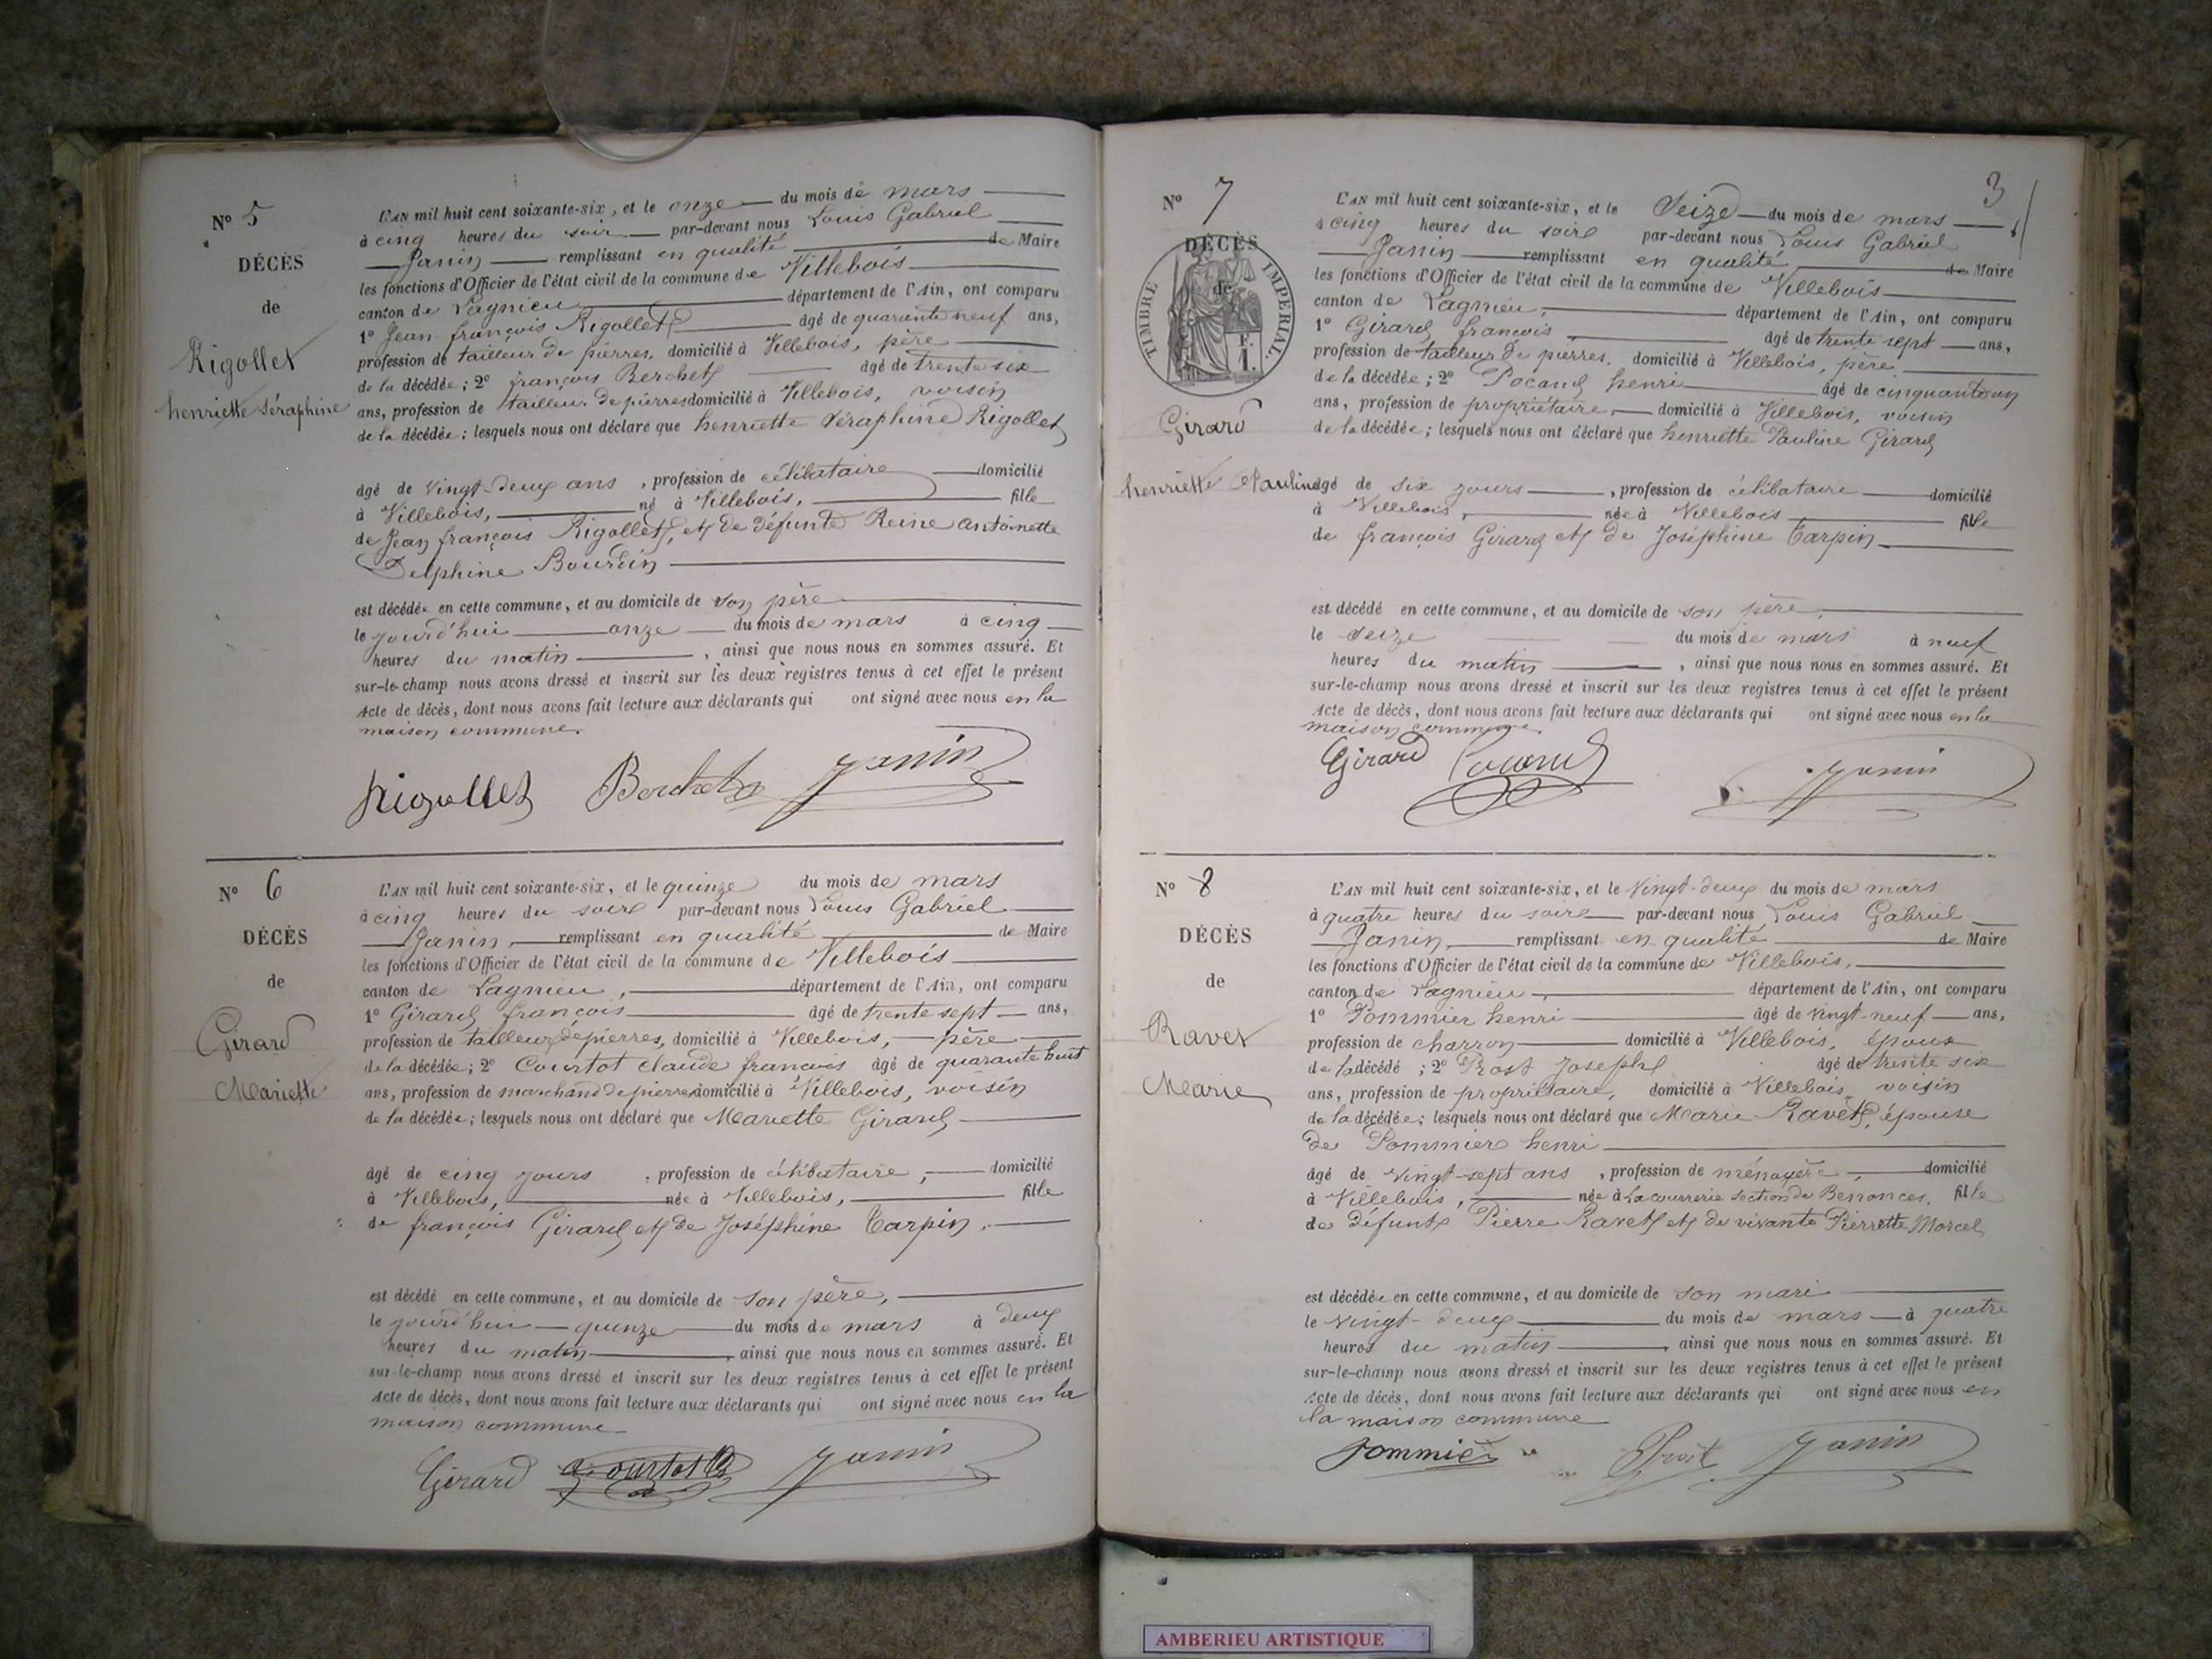 N° 5
DÉCÈS
de
Rigollet
henriette Séraphine
L'AN mil huit cent soixante-six, et le onze du mois de mars
à cinq heures du soir par-devant nous Louis Gabriel
Janin remplissant en qualité de Maire
les fonctions d'Officier de l'état civil de la commune de Villebois
canton de Lagnieu département de l'Ain, ont comparu
1° Jean françois Rigollet âgé de quarante neuf ans,
profession de tailleur de pierres, domicilié à Villebois, père
de la décédée; 2° françois Berchet âgé de trente six
ans, profession de tailleur de pierres domicilié à Villebois, voisin
de la décédée; lesquels nous ont déclaré que henriette Séraphine Rigollet
âgé de vingt-deux ans, profession de célibataire domicilié
à Villebois, né à Villebois, fille
de Jean françois Rigollet, et de défunte Reine antoinette
Delphine Bourdin
est décédée en cette commune, et au domicile de son père
le jourd'hui onze du mois de mars à cinq
heures du matin, ainsi que nous nous en sommes assuré. Et
sur-le-champ nous avons dressé et inscrit sur les deux registres tenus à cet effet le présent
Acte de décès, dont nous avons fait lecture aux déclarants qui ont signé avec nous en la
maison commune.
Rigollet Berchet Janin
N° 6
DÉCÈS
de
Girard
Mariette
L'AN mil huit cent soixante-six, et le quinze du mois de mars
à cinq heures du soire par-devant nous Louis Gabriel
Janin, remplissant en qualité de Maire
les fonctions d'Officier de l'état civil de la commune de Villebois
canton de Lagnieu, département de l'Ain, ont comparu
1° Girard françois âgé de trente sept ans,
profession de tailleur de pierres, domicilié à Villebois, père
de la décédée; 2° Courtot claude françois âgé de quarante huit
ans, profession de marchand de pierres domicilié à Villebois, voisin
de la décédée; lesquels nous ont déclaré que Mariette Girard
âgé de cinq jours, profession de célibataire, domicilié
à Villebois, née à Villebois, fille
de françois Girard et de Joséphine Tarpin.
est décédé en cette commune, et au domicile de son père,
le jourd'hui quinze du mois de mars à deux
heures du matin, ainsi que nous nous en sommes assuré. Et
sur-le-champ nous avons dressé et inscrit sur les deux registres tenus à cet effet le présent
Acte de décès, dont nous avons fait lecture aux déclarants qui ont signé avec nous en la
maison commune
Girard Courtot Janin
3
N° 7
DÉCÈS
de
TIMBRE IMPÉRIAL
F.
1.
Girard
henriette Pauline
L'AN mil huit cent soixante-six, et le Seize du mois de mars
à cinq heures du soire par-devant nous Louis Gabriel
Janin remplissant en qualité de Maire
les fonctions d'Officier de l'état civil de la commune de Villebois
canton de Lagnieu, département de l'Ain, ont comparu
1° Girard françois âgé de trente sept ans,
profession de tailleur de pierres, domicilié à Villebois, père
de la décédée; 2° Pocand henri âgé de cinquante un
ans, profession de propriétaire, domicilié à Villebois, voisin
de la décédée; lesquels nous ont déclaré que henriette Pauline Girard
âgé de six jours, profession de célibataire domicilié
à Villebois, née à Villebois fille
de françois Girard et de Joséphine Tarpin
est décédé en cette commune, et au domicile de son père,
le seize du mois de mars à neuf
heures du matin, ainsi que nous nous en sommes assuré. Et
sur-le-champ nous avons dressé et inscrit sur les deux registres tenus à cet effet le présent
Acte de décès, dont nous avons fait lecture aux déclarants qui ont signé avec nous en la
maison commune.
Girard Pocand Janin
N° 8
DÉCÈS
de
Ravet
Marie
L'AN mil huit cent soixante-six, et le vingt-deux du mois de mars
à quatre heures du soire par-devant nous Louis Gabriel
Janin, remplissant en qualité de Maire
les fonctions d'Officier de l'état civil de la commune de Villebois,
canton de Lagnieu, département de l'Ain, ont comparu
1° Pommier henri âgé de vingt-neuf ans,
profession de charron domicilié à Villebois, époux
de la décédé; 2° Prost Joseph âgé de trente six
ans, profession de propriétaire, domicilié à Villebois, voisin
de la décédée; lesquels nous ont déclaré que Marie Ravet, épouse
de Pommier henri
âgé de vingt-sept ans, profession de ménagère, domicilié
à Villebois, née à Lacourrerie section de Benonces, fille
de défunt Pierre Ravet et de vivante Pierrette Morcel
est décédée en cette commune, et au domicile de son mari
le vingt-deux du mois de mars à quatre
heures du matin, ainsi que nous nous en sommes assuré. Et
sur-le-champ nous avons dressé et inscrit sur les deux registres tenus à cet effet le présent
Acte de décès, dont nous avons fait lecture aux déclarants qui ont signé avec nous en
la maison commune
Pommier Prost Janin
AMBERIEU ARTISTIQUE